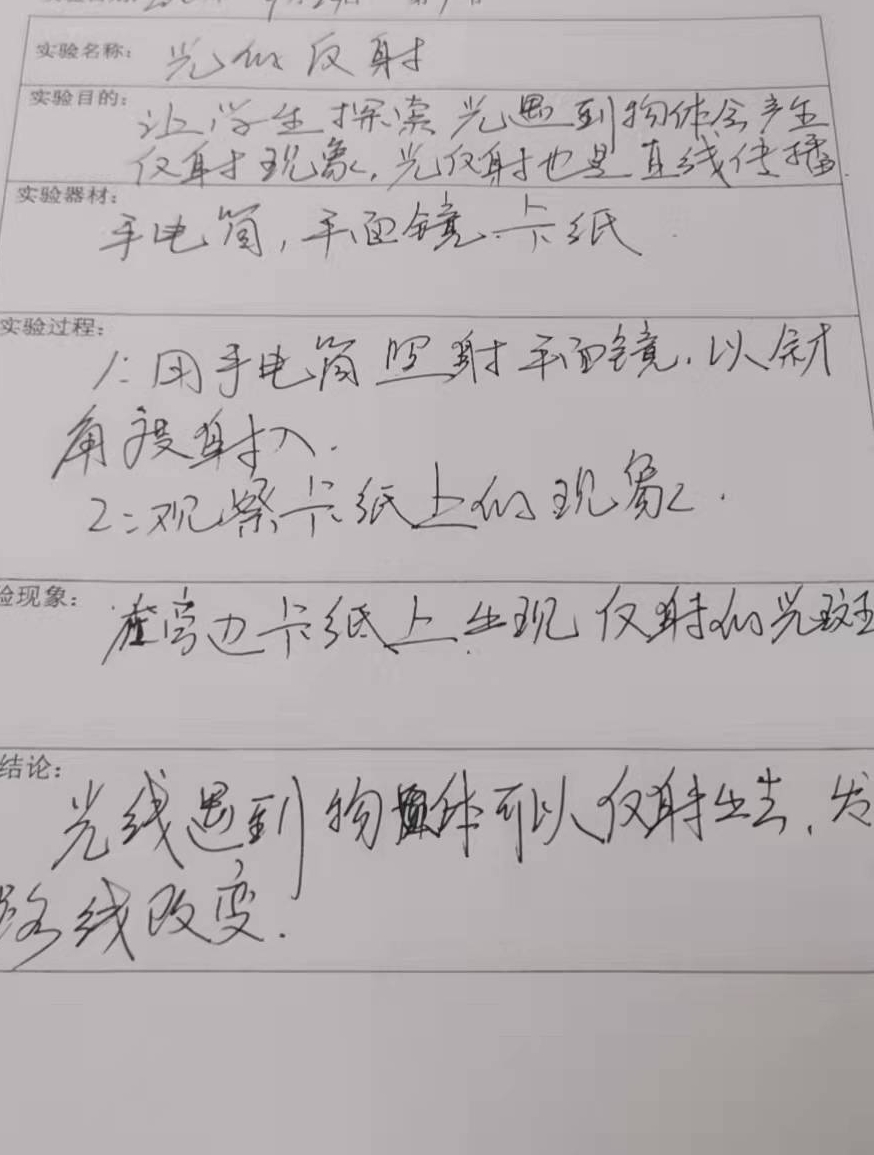 实验名称：光的反射
实验目的：让学生探索光遇到物体会产生
反射现象，光反射也是直线传播.
实验器材：
手电筒，平面镜.卡纸.
实验过程：
1：用手电筒照射平面镜.以斜
角度射入.
2：观察卡纸上的现象.
验现象：卡纸上出现反射的光斑
结论：
光线遇到物体可以反射出去.发
路线改变.